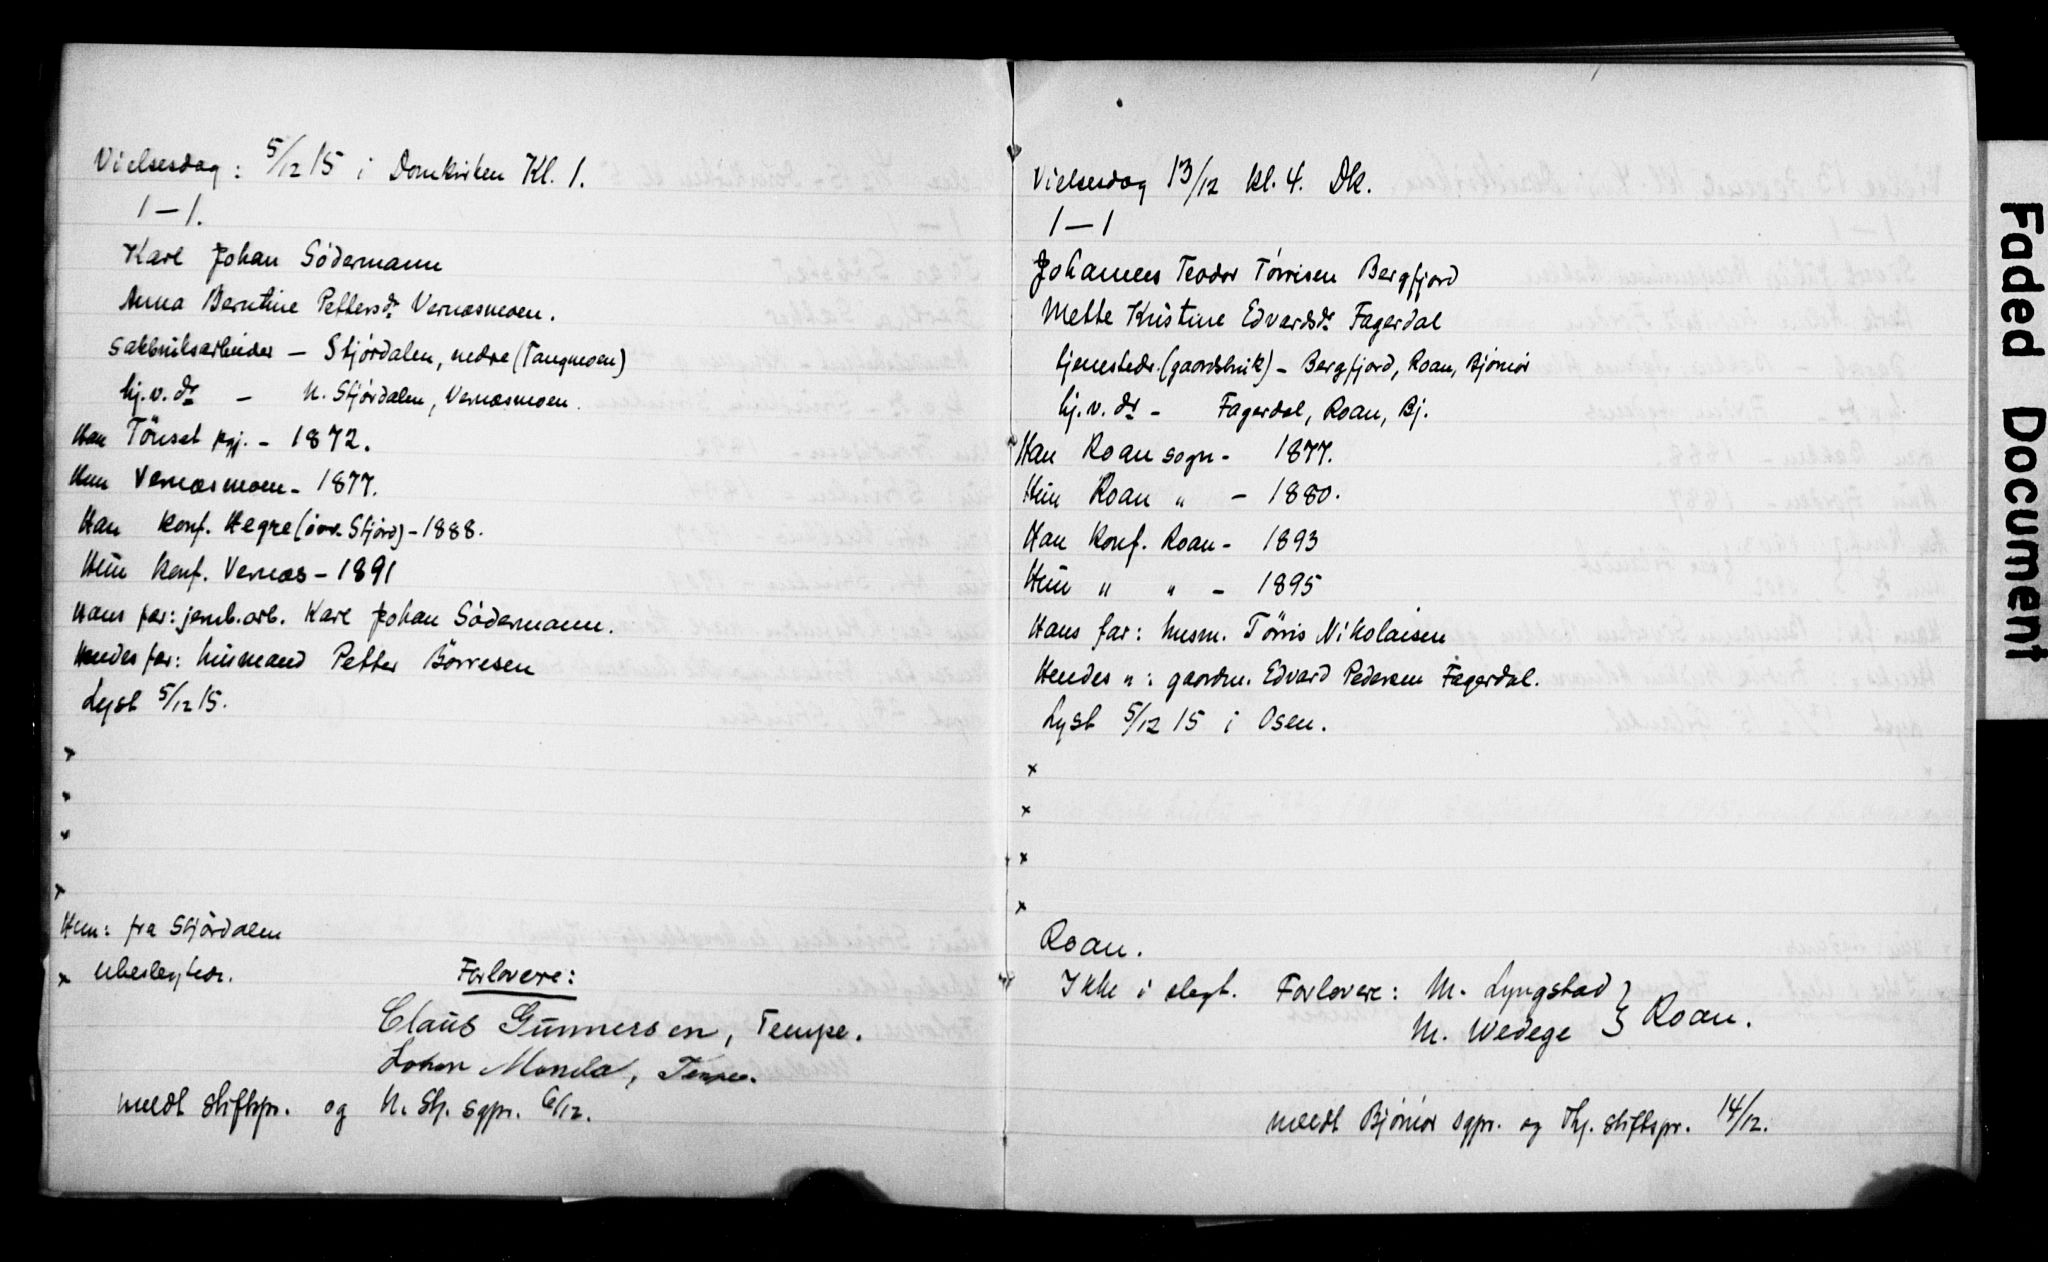 Vielsesdag: 5/12 15 i Domkirken Kl. 1.
1 — 1.
Karl Johan Södermann
Anna Berntine Pettersdr Vernæsmoen.
sakbruksarbeider — Stjørdalen, nedre (Tangmoen)
hj.v.dr — N. Stjørdalen, Vernæsmoen.
Han Tönset pgj. - 1872.
Hun Vernæsmoen - 1877.
Han konf. Hegre (övr. Stjörd) - 1888.
Hun konf. Vernæs - 1891
Hans far: jernb.arb. Karl Johan Södermann.
Hendes far: husmand Petter Börresen
Lyst 5/12 15.
x
x
x
x
Hun: fra Stjördalen
x ubeslegtede.
Forlovere:
Claus Gunnersen, Tempe.
Johan Tempe.
meldt stiftspr. og N. Stj. sgpr. 6/12.
Vielsesdag 13/12 kl. 4. Dk.
1 — 1
Johannes Teodor Tørrisen Bergfjord
Mette Kristine Edvardsdr Fagerdal
tjenestedr. (gaardsbruk) - Bergfjord, Roan, Bjørnør
hj.v.dr - Fagerdal, Roan, Bj.
Han Roan sogn - 1877.
Hun Roan " - 1880.
Han konf. Roan - 1893
Hun " " - 1895
Hans far: husm. Törris Nikolaisen
Hendes ": gaardm. Edvard Pedersen Fagerdal.
Lyst 5/12 15 i Osen.
x
x
x
x
Roan.
Ikke i slegt. Forlovere: M. Lyngstad
M. Wedege } Roan.
meldt Bjørnør sgpr. og Thj. stiftspr. 14/12.
Faded Document